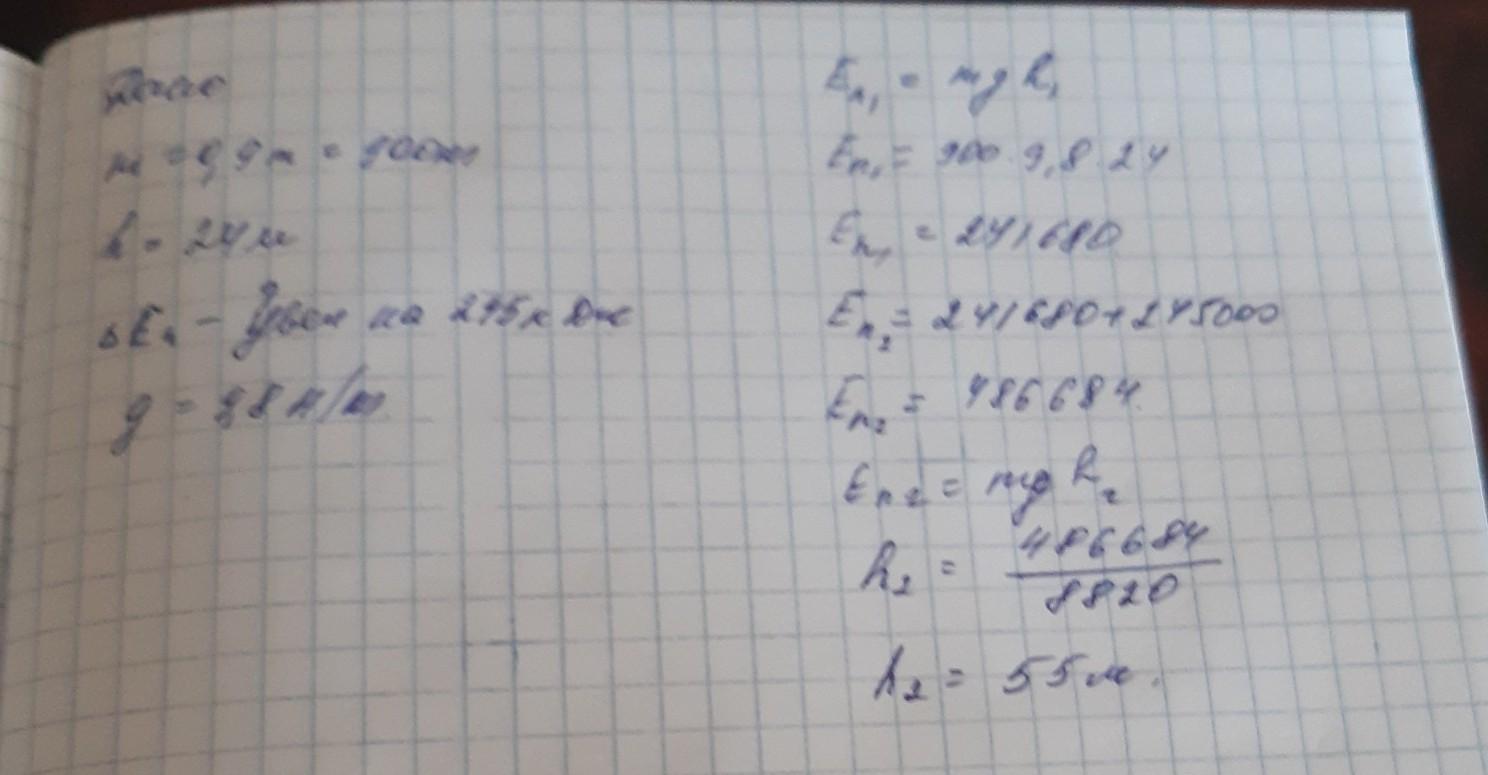 Дано
m = 0,9 т = 900 кг
h = 24 м
ΔEп – Увел на 245 кДж
g = 9,8 Н/кг
Eп₁ = mgh₁
Eп₁ = 900 · 9,8 · 24
Eп₁ = 241680
Eп₂ = 241680 + 245000
Eп₂ = 486684
Eп₂ = mgh₂
h₂ = 486684 / 8820
h₂ = 55 м.